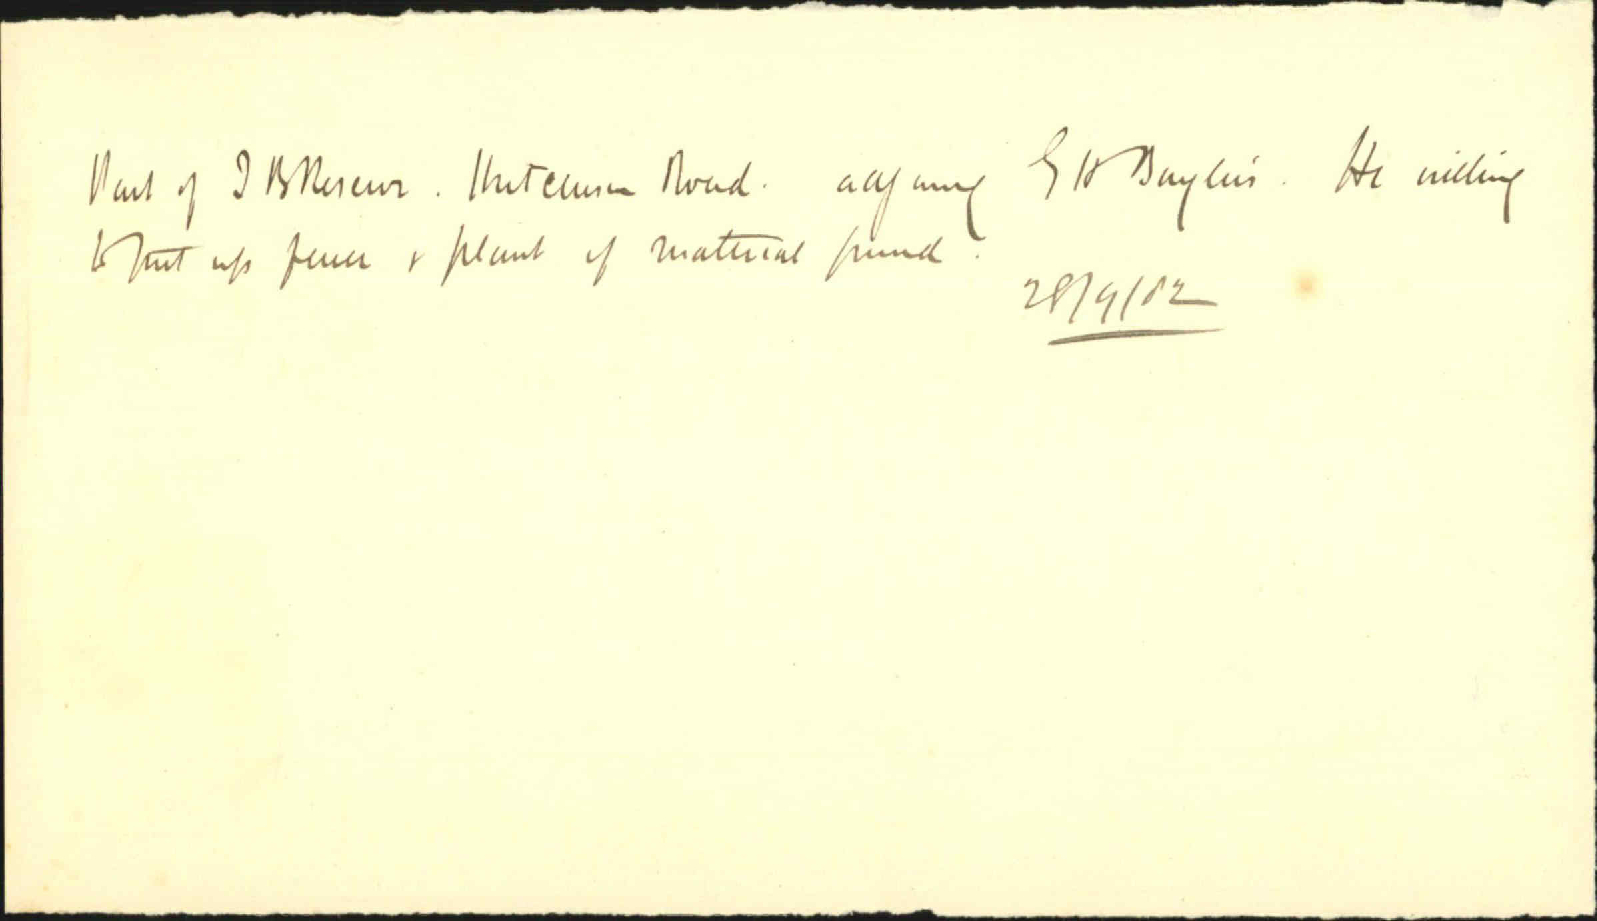 Part of T B Reserve. Hutchison Road. adjoining G H Baylis'. He willing
to put up fence & plant if material found.
28/9/02